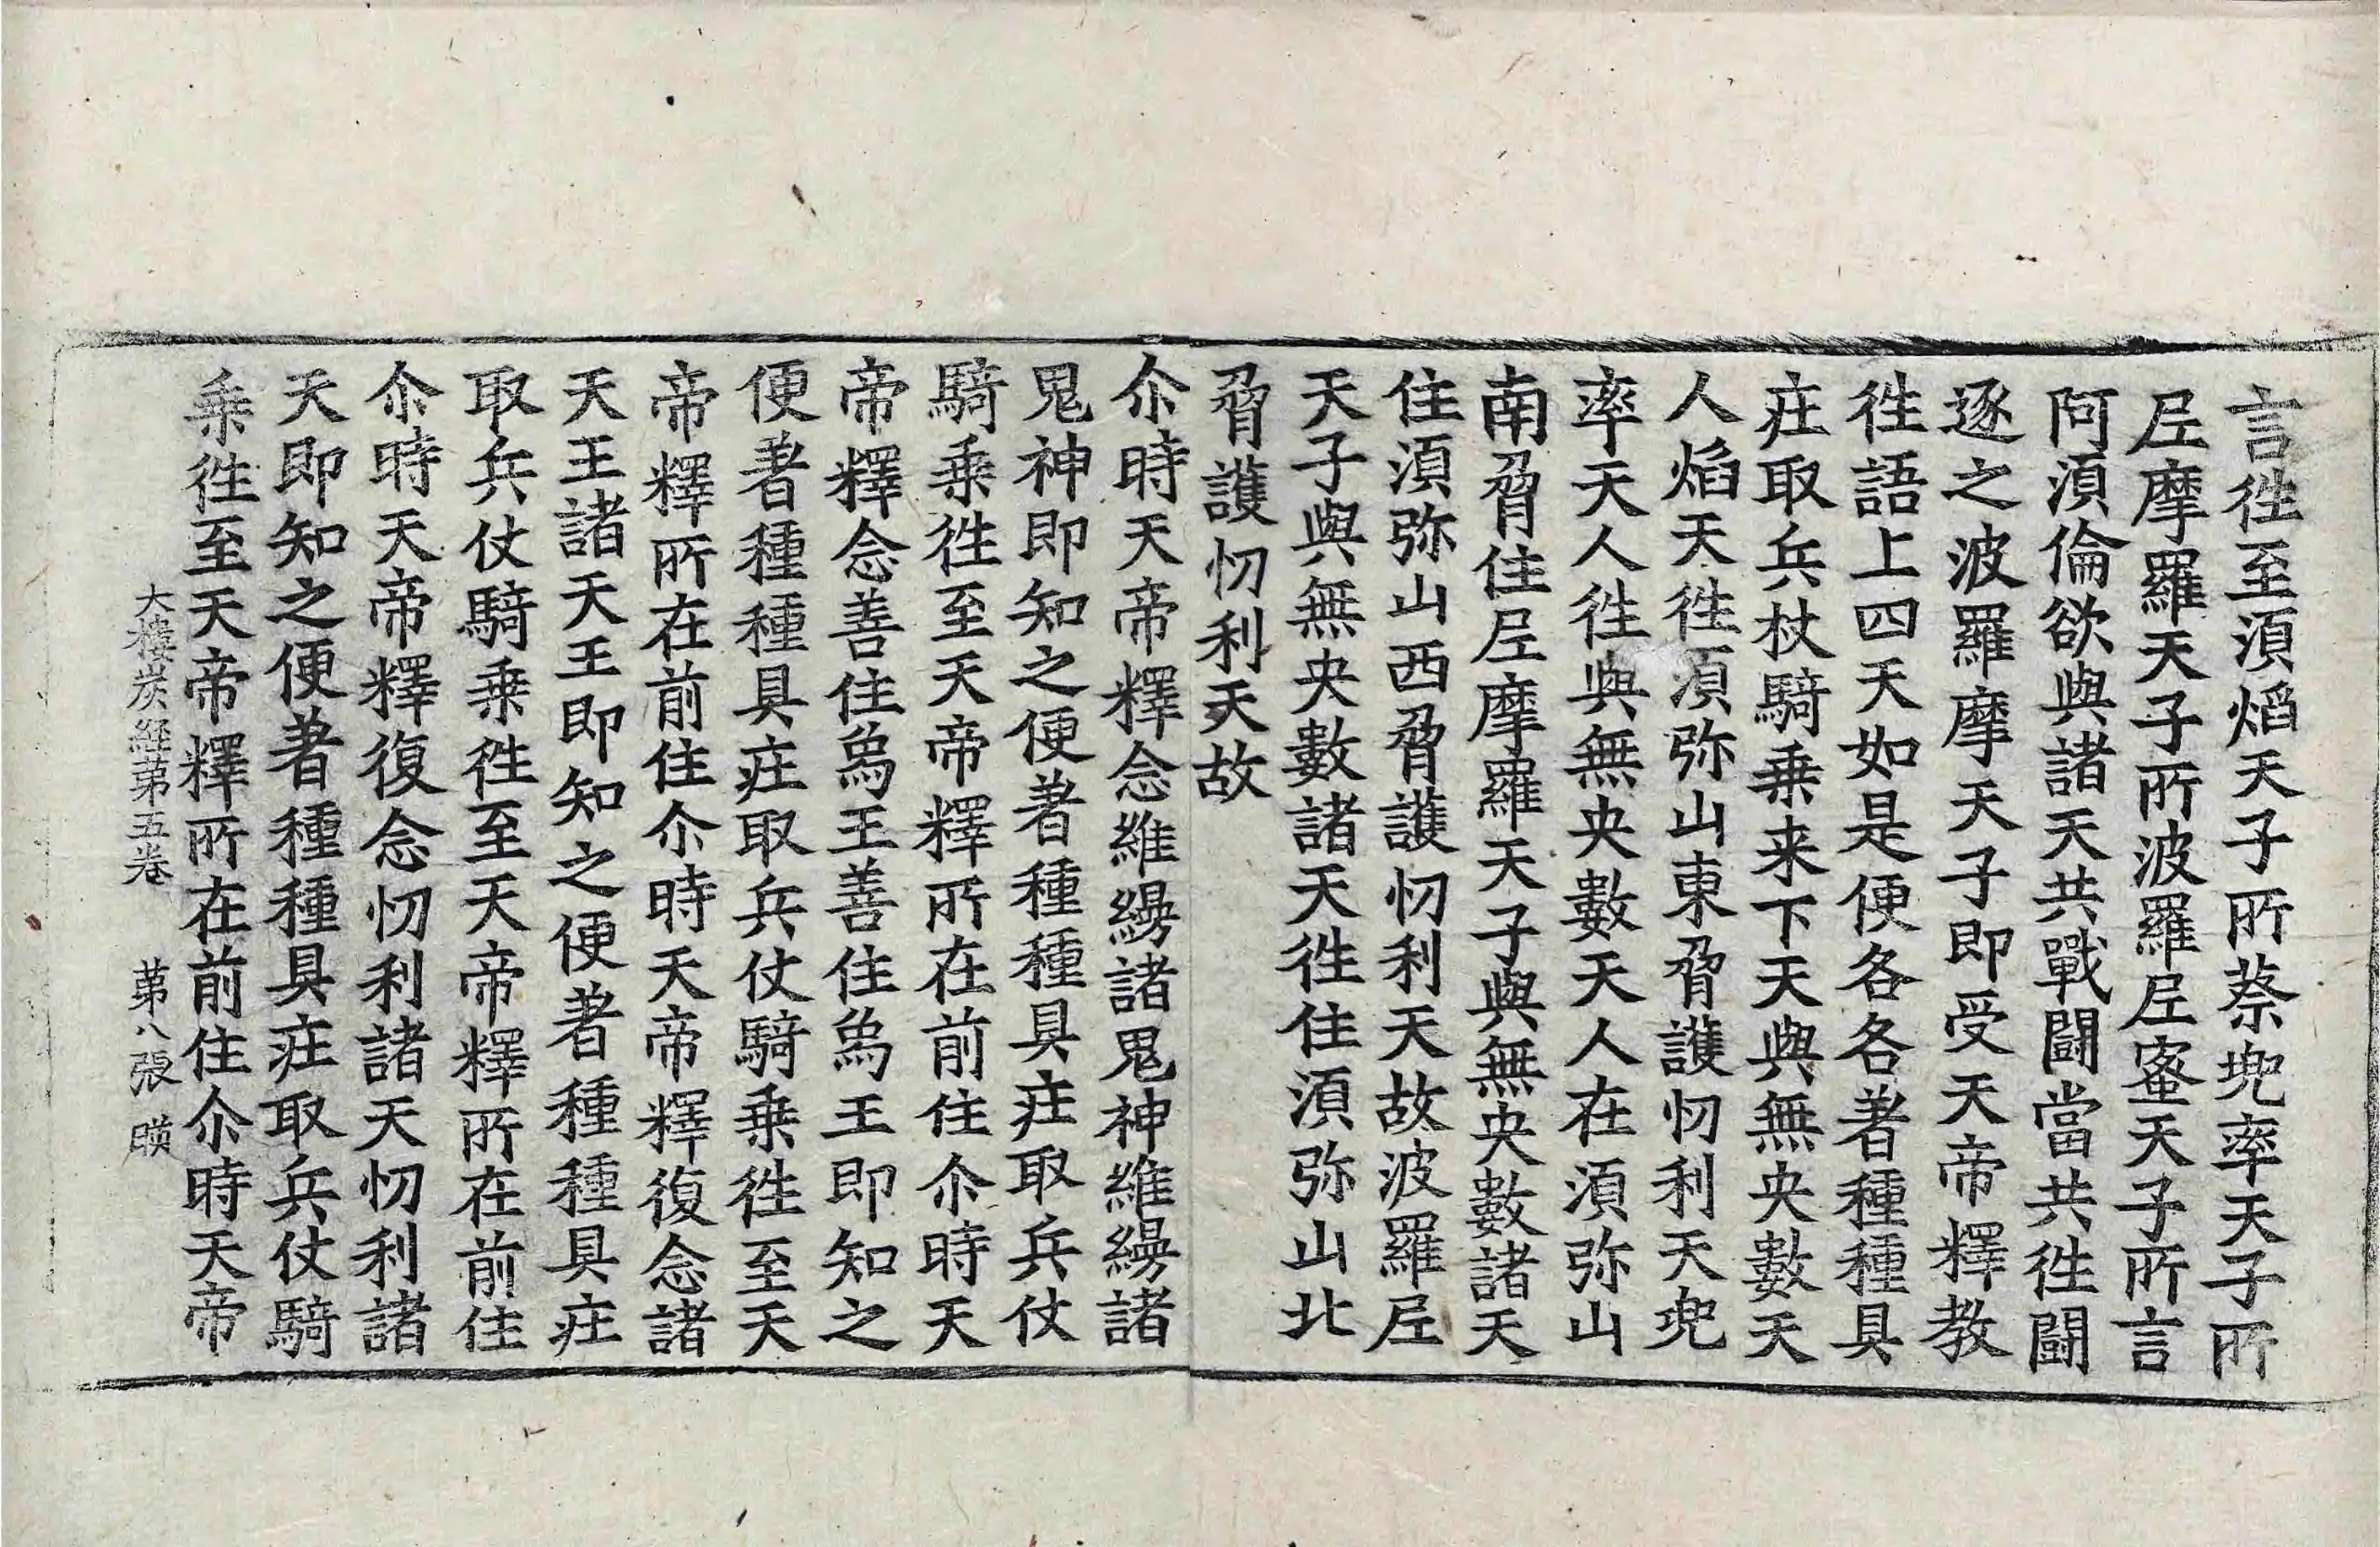 言徃至湏焰天子所蔡兜率天子所
𡰱摩羅天子所波羅𡰱蜜天子所言
阿湏倫欲與諸天共戰鬪當共徃鬪
逐之波羅摩天子即受天帝釋教
徃語上四天如是便各各著種種具
疘取兵杖騎乗来下天與無央數天
人焰天徃湏弥山東脅護忉利天兜
率天人徃與無央數天人在湏弥山
南脅住𡰱摩羅天子與無央數諸天
住湏弥山西脅護忉利天故波羅𡰱
天子與無央數諸天徃住湏弥山北
脅護忉利天故
尒時天帝釋念維緆諸鬼神維緆諸
鬼神即知之便著種種具疘取兵仗
騎乗徃至天帝釋所在前住尒時天
帝釋念善住爲王善住爲王即知之
便著種種具疘取兵仗騎乗徃至天
帝釋所在前住尒時天帝釋復念諸
天王諸天王即知之便著種種具疘
取兵仗騎乗徃至天帝釋所在前住
尒時天帝釋復念忉利諸天忉利諸
天即知之便著種種具疘取兵仗騎
乗徃至天帝釋所在前住尒時天帝
大樓炭經第五卷 第八張 暎